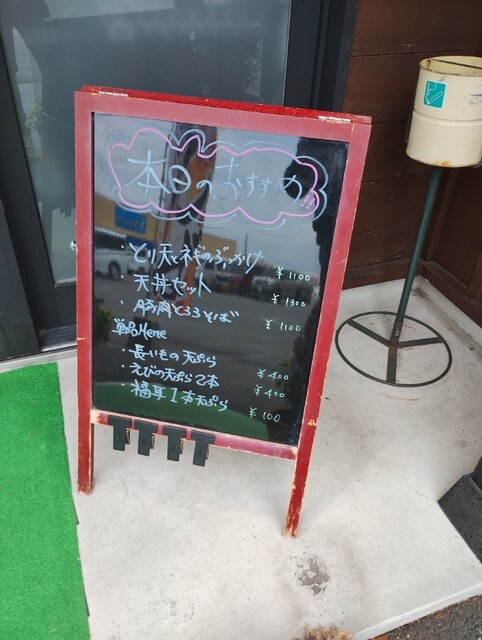 本日のおすすめ!!
・とり天とネギのぶっかけ ¥1100
天丼セット ¥1300
・豚肉とろろそば ¥1100
単品Menu
・長いもの天ぷら ¥400
・えびの天ぷら2本 ¥400
・福耳1本天ぷら ¥100